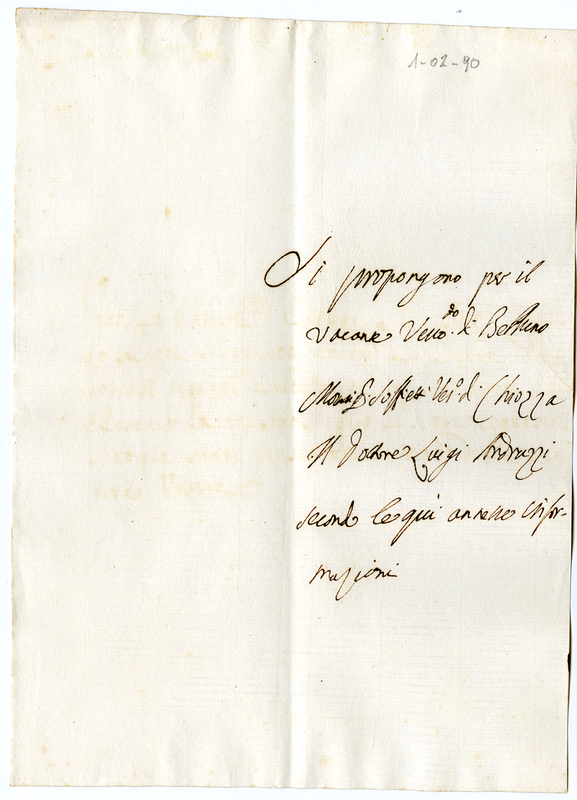 1-02-90
Si propongono per il
vacante Vesco.do di Belluno
Monsig.r Soffietti Ves.o di Chiozza
Il Dottore Luigi Andruzzi
secondo le qui annesse infor-
mazioni